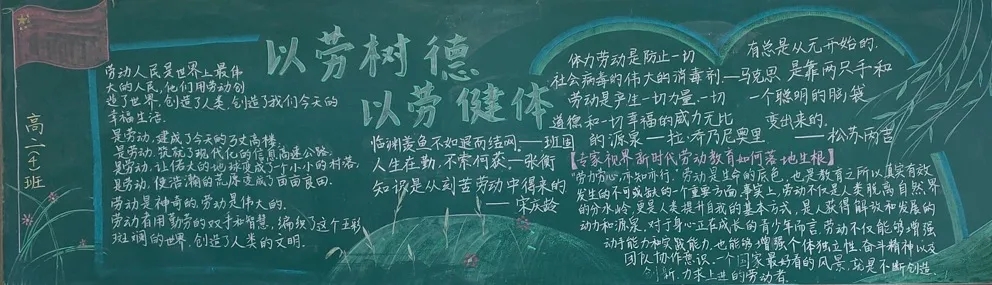 高二七班
以劳树德
以劳健体
劳动人民是世界上最伟
大的人民,他们用劳动创
造了世界,创造了人类,创造了我们今天的
幸福生活。
是劳动,建成了今天的万丈高楼。
是劳动,筑就了现代化的信息高速公路。
是劳动,让偌大的地球变成了一个小小的村落。
是劳动,使浩瀚的荒原变成了亩亩良田。
劳动是神奇的,劳动是伟大的。
劳动者用勤劳的双手和智慧,编织了这个五彩
斑斓的世界,创造了人类的文明。
临渊羡鱼不如退而结网——班固
人生在勤,不索何获——张衡
知识是从刻苦劳动中得来的
——宋庆龄
体力劳动是防止一切
社会病毒的伟大的消毒剂——马克思
劳动是产生一切力量、一切
道德和一切幸福的威力无比
的源泉——拉·乔乃尼奥里
有总是从无开始的,
是靠两只手和
一个聪明的脑袋
变出来的。
——松苏内吉
【专家视界新时代劳动教育如何落地生根】
“劳力劳心,亦知亦行”,劳动是生命的底色,也是教育之所以真实有效
发生的不可或缺的一个重要方面,事实上,劳动不仅是人类脱离自然界
的分水岭,更是人类提升自我的基本方式,是人获得解放和发展的
动力和源泉,对于身心正在成长的青少年而言,劳动不仅能够增强
动手能力和实践能力,也能够增强个体独立性、奋斗精神以及
团队协作意识,一个国家最好看的风景,就是不断创造、
创新、力求上进的劳动者。